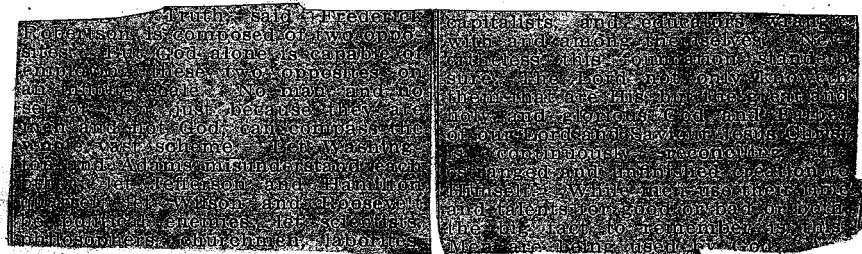 Truth, said Frederick
Robertson is composed of two oppo-
sites. But God alone is capable of
employing these two opposites on
an infinite scale. No man and no
set of men, just because they are
men and not God, can compass the
whole vast scheme. Let Washing-
ton and Adams misunderstand each
other, let Jefferson and Hamilton
let Wilson and Roosevelt
be political enemies, let scientists,
philosophers, churchmen, laborites,
capitalists and educators wrangle
with and among themselves. Nev-
ertheless this foundation standeth
sure. The Lord not only knoweth
them that are His, but the great and
holy and glorious God and Father
of our Lord and Saviour Jesus Christ
is continuously reconciling
estranged and creation to
Himself. While men use their
and talents for good or bad
the big fact to remember is this
Men are being used by God.